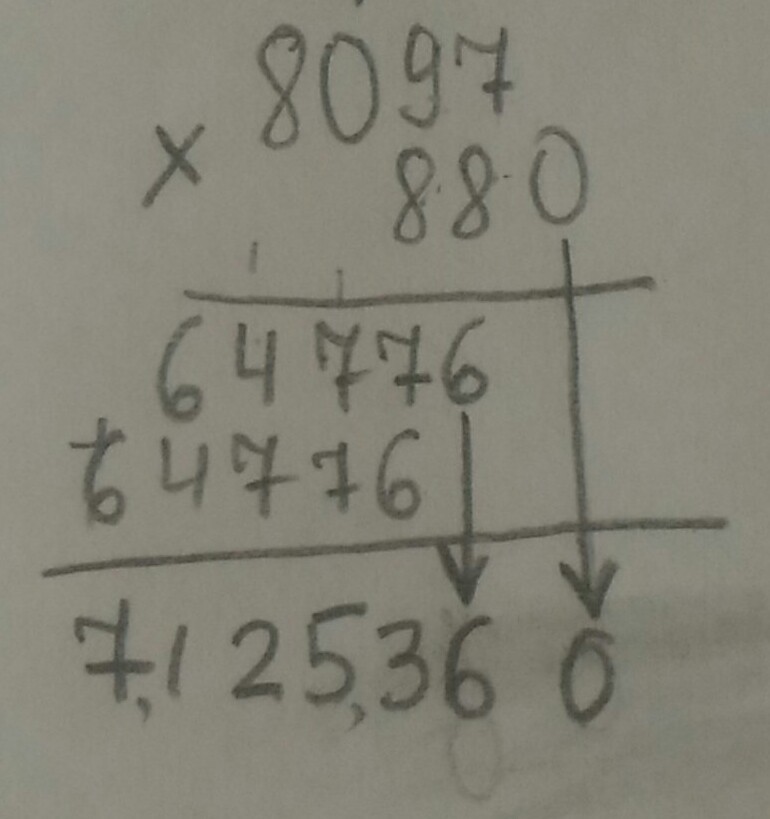 8097
× 880
64776
+64776
7,125,360